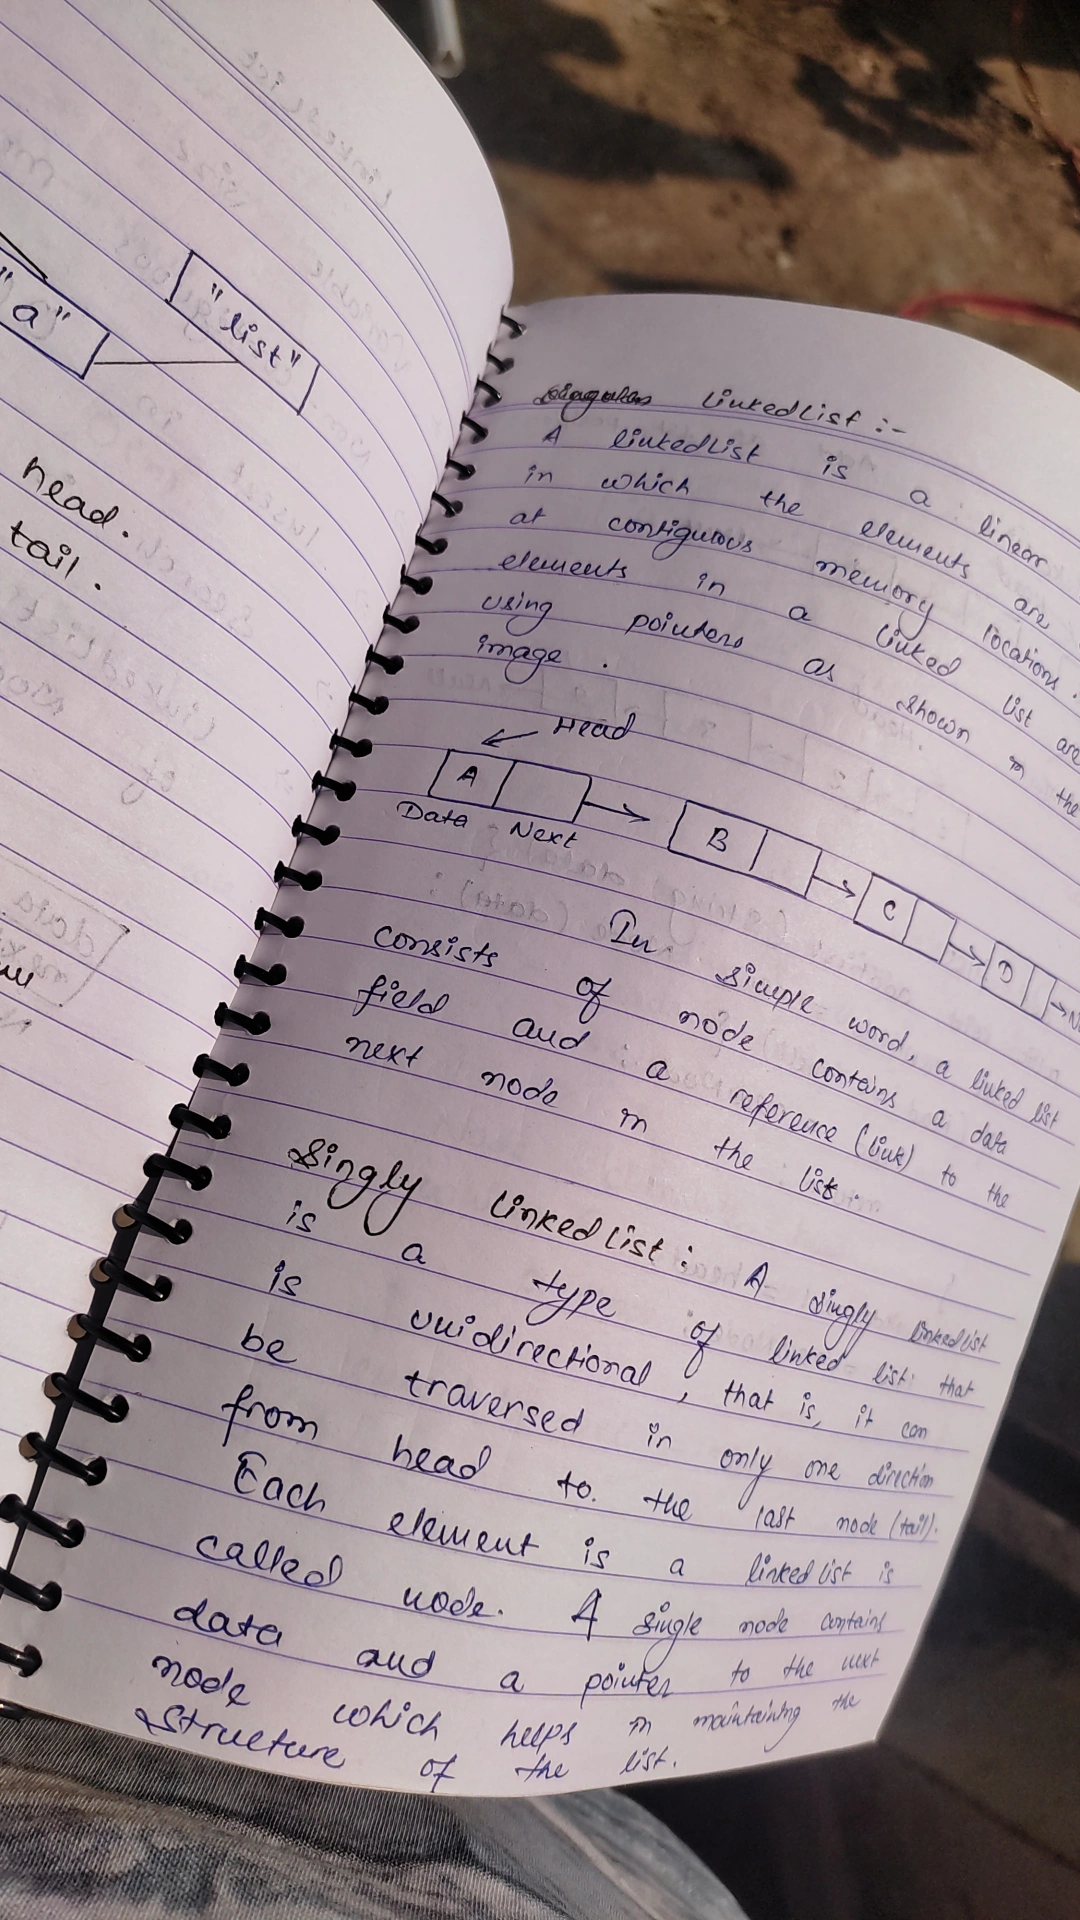 "a"
"list"
head.
tail.
LinkedList :-
A linkedList is a linear
in which the elements are
at contiguous memory locations.
elements in a linked list are
using pointers as shown in the
image.
Head
A
B
C
D
Data Next
In simple word, a linked list
consists of node contains a data
field and a reference (link) to the
next node in the list.
Singly Linked list: A singly linkedlist
is a type of linked list that
is unidirectional, that is, it can
be traversed in only one direction
from head to. the last node (tail).
Each element is a linked list is
called node. A single node contains
data and a pointer to the next
node which helps in maintaining the
structure of the list.